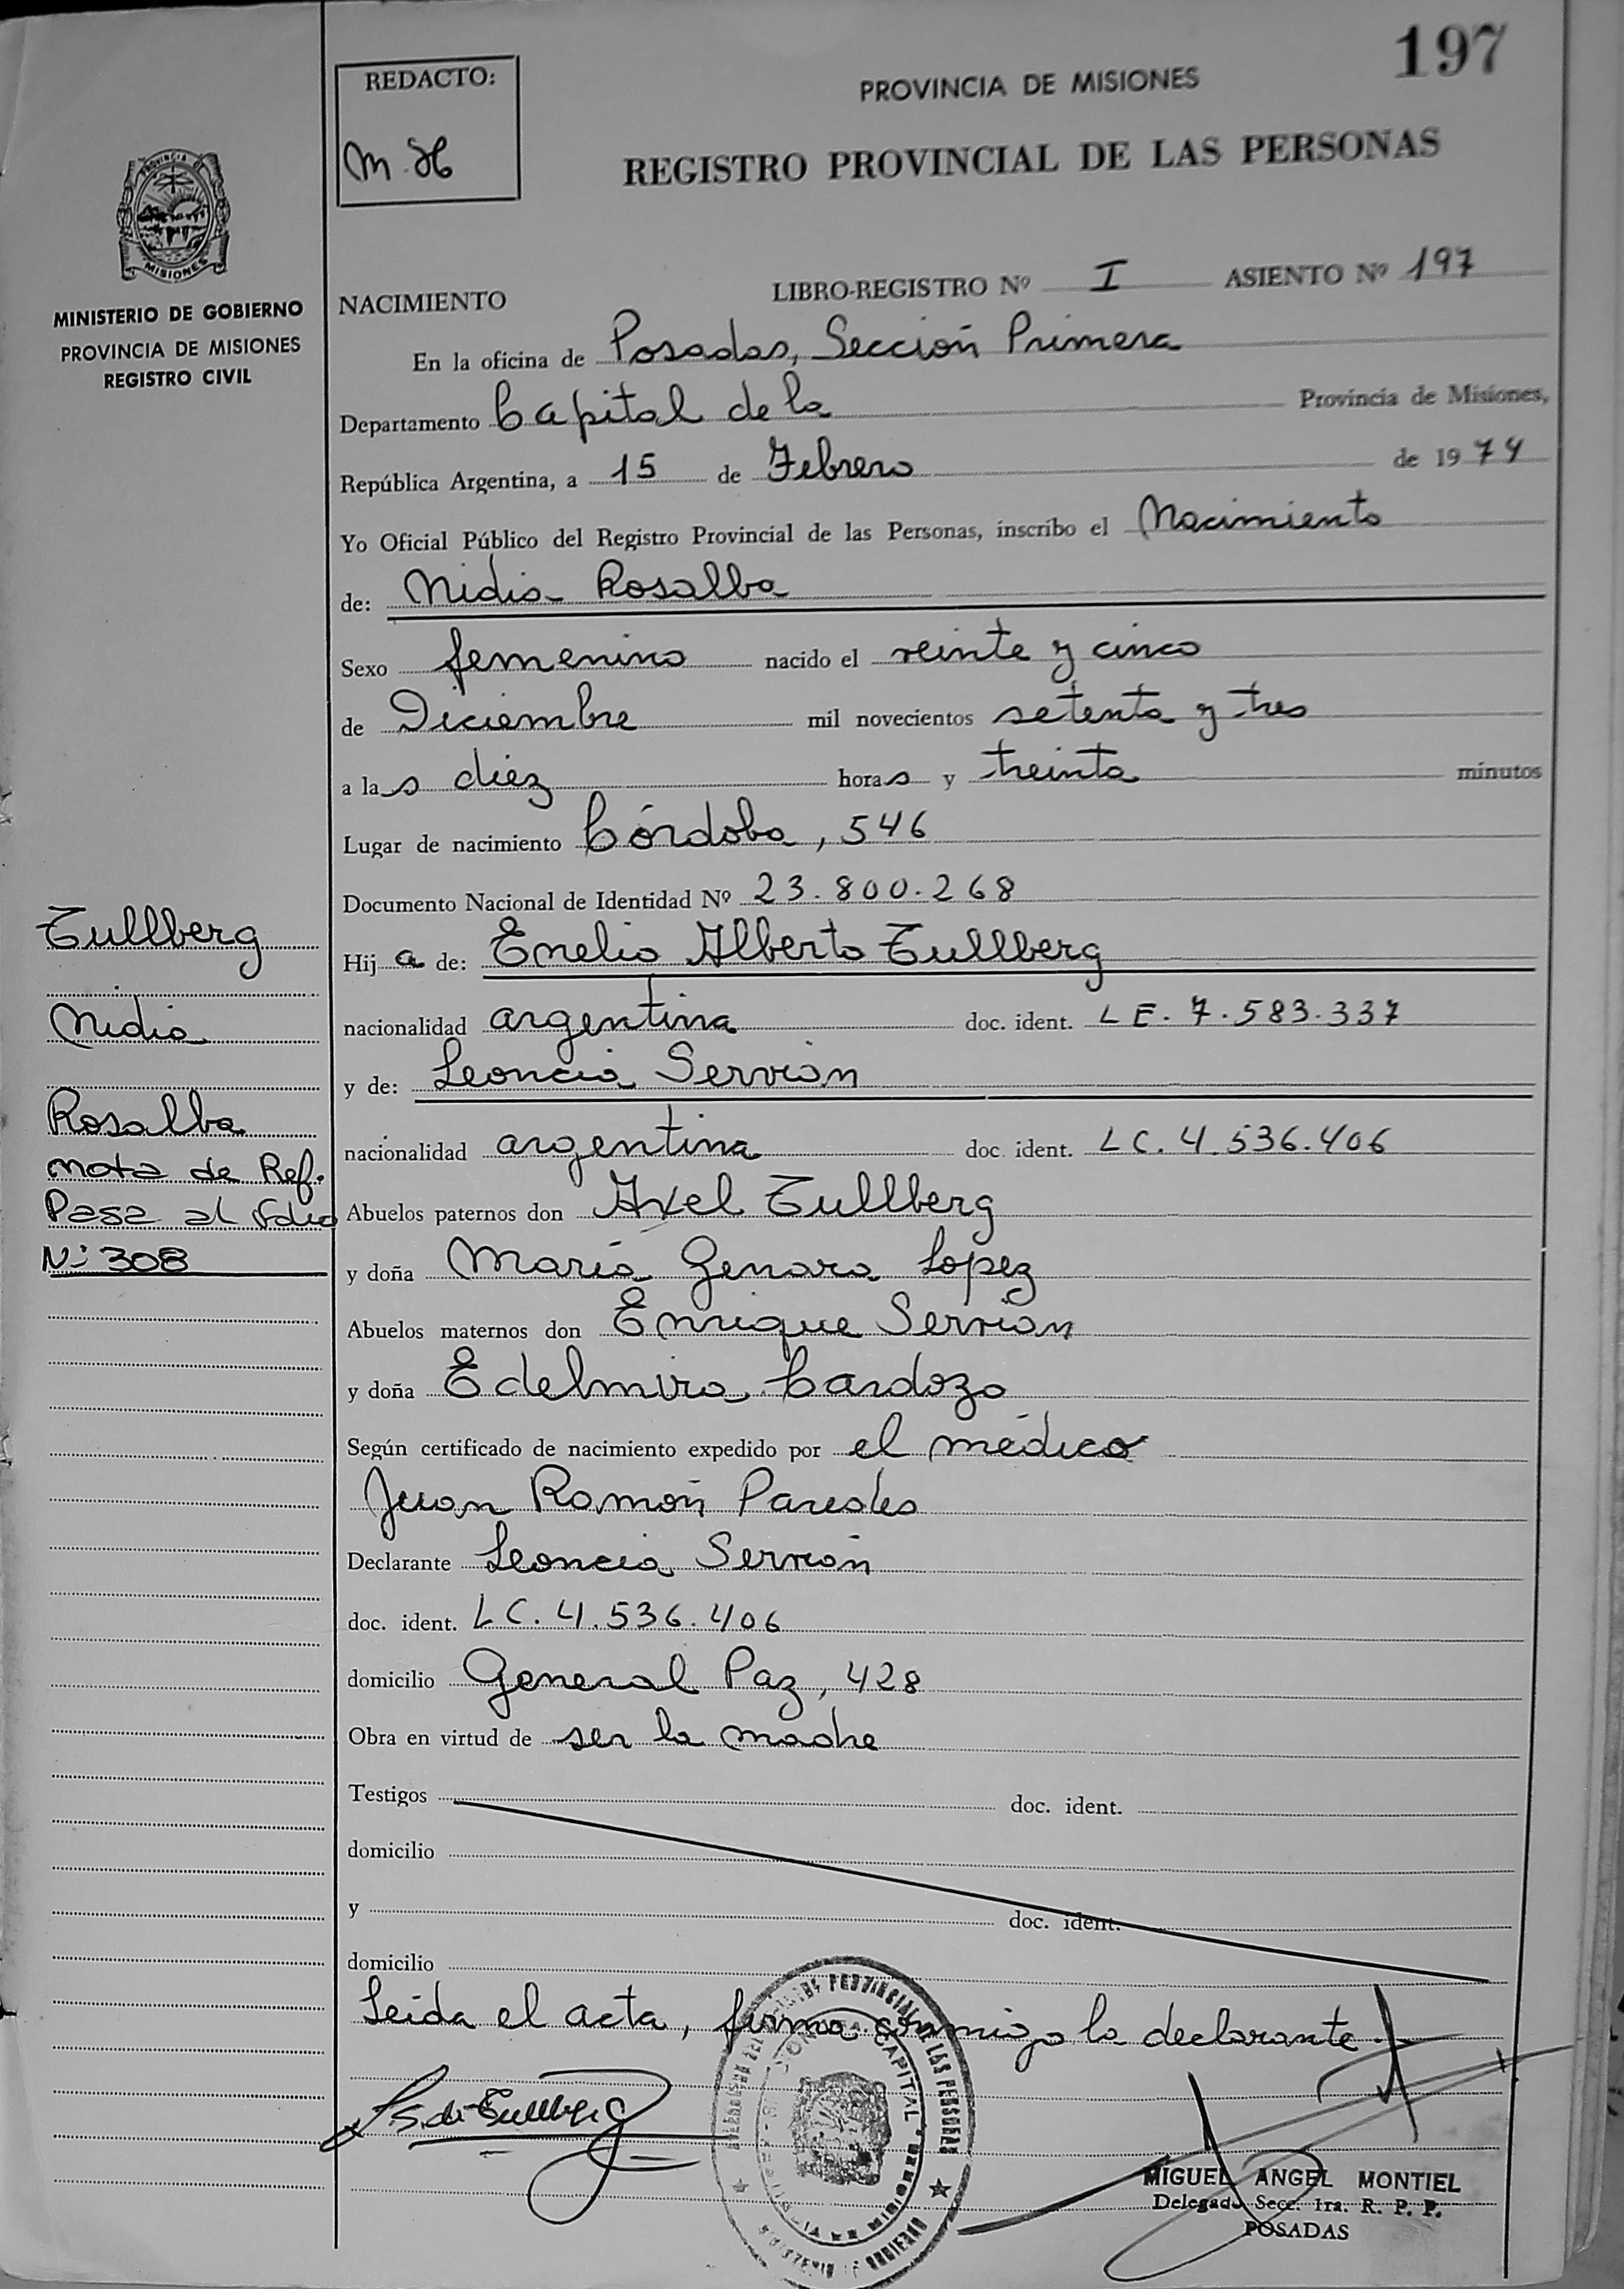 197
REDACTO:
M.H
PROVINCIA DE MISIONES
REGISTRO PROVINCIAL DE LAS PERSONAS
MISIONES
MINISTERIO DE GOBIERNO
PROVINCIA DE MISIONES
REGISTRO CIVIL
NACIMIENTO LIBRO-REGISTRO Nº I ASIENTO Nº 197
En la oficina de Posadas, Sección Primera
Departamento Capital de la Provincia de Misiones,
República Argentina, a 15 de Febrero de 1974
Yo Oficial Público del Registro Provincial de las Personas, inscribo el Nacimiento
de: Nidia Rosalba
Sexo femenino nacido el veinte y cinco
de Diciembre mil novecientos setenta y tres
a las diez horas y treinta minutos
Lugar de nacimiento Córdoba, 546
Documento Nacional de Identidad Nº 23.800.268
Hija de: Enelio Alberto Tullberg
nacionalidad argentina doc. ident. LE. 7.583.337
y de: Leoncia Servián
nacionalidad argentina doc. ident. LC. 4.536.406
Abuelos paternos don Axel Tullberg
y doña María Genara Lopez
Abuelos maternos don Enrique Servián
y doña Edelmira Cardozo
Según certificado de nacimiento expedido por el médico
Juan Ramón Paredes
Declarante Leoncia Servián
doc. ident. LC. 4.536.406
domicilio General Paz, 428
Obra en virtud de ser la madre
Testigos doc. ident.
domicilio
y doc. ident.
domicilio
Leida el acta, firma conmigo la declarante.
L. S. de Tullberg
MIGUEL ANGEL MONTIEL
Delegado Secc. 1ra. R. P. P.
POSADAS
Tullberg
Nidia
Rosalba
nota de Ref.
Pasa al folio
Nº 308